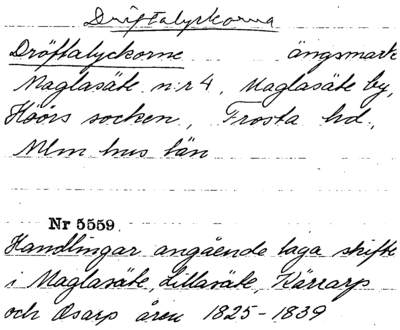 Driftalyckorna
Dröftalyckorne ängsmark
Maglasäte n:r 4, Maglasäte by,
Höörs socken, Frosta hd.,
Mlm hus län
Nr 5559
Handlingar angående laga skifte
i Maglasäte, Lillasäte, Kärrarp
och Osarp åren 1825-1839